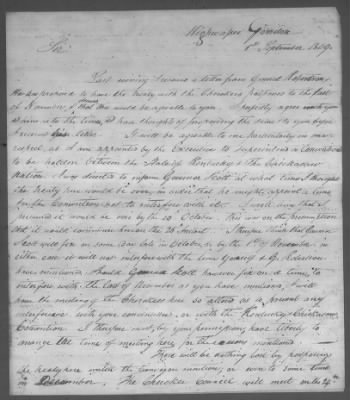 Highwassee Garrison
1st September 1809.
Sir.
Last evening I received a letter from General Robertson,
He has proposed to have the treaty with the Cherokees postponed to the last
of November, & that would be agreeable to you. I perfectly agree with you
as well as to the time, & had thought of proposing the same to you before
I received your letter. It will be agreeable to me particularly in one
respect, as I am appointed by the Executive to superintend a Convention
to be holden between the State of Kentucky & the Chickasaw
Nation. I was directed to inform Governor Scott at what time I thought
the treaty here would be over, in order that he might appoint a time
for his Convention not to interfere with it. I wrote him that I
presumed it would be over by the 20th October. This was on the presumption
that it would commence here on the 20 Instant. I therefore think that Governor
Scott will fix on some day late in October, or by the 1st of November. In
either case it will not interfere with the time yourself & G. Robertson
have mentioned. Should Governor Scott however fix on a time to
interfere with the last of November as you have mentioned, I will
have the meeting of the Cherokees here so altered as to prevent any
interference with your convenience, or with the Kentucky & Chickasaw
Convention. I therefore must, by your permission, have liberty to
arrange the time of meeting here, for the reasons mentioned.
There will be nothing lost by postponing
the treaty here until the time you mention, or even to some time
in December. The Cherokee Council will meet on the 24th